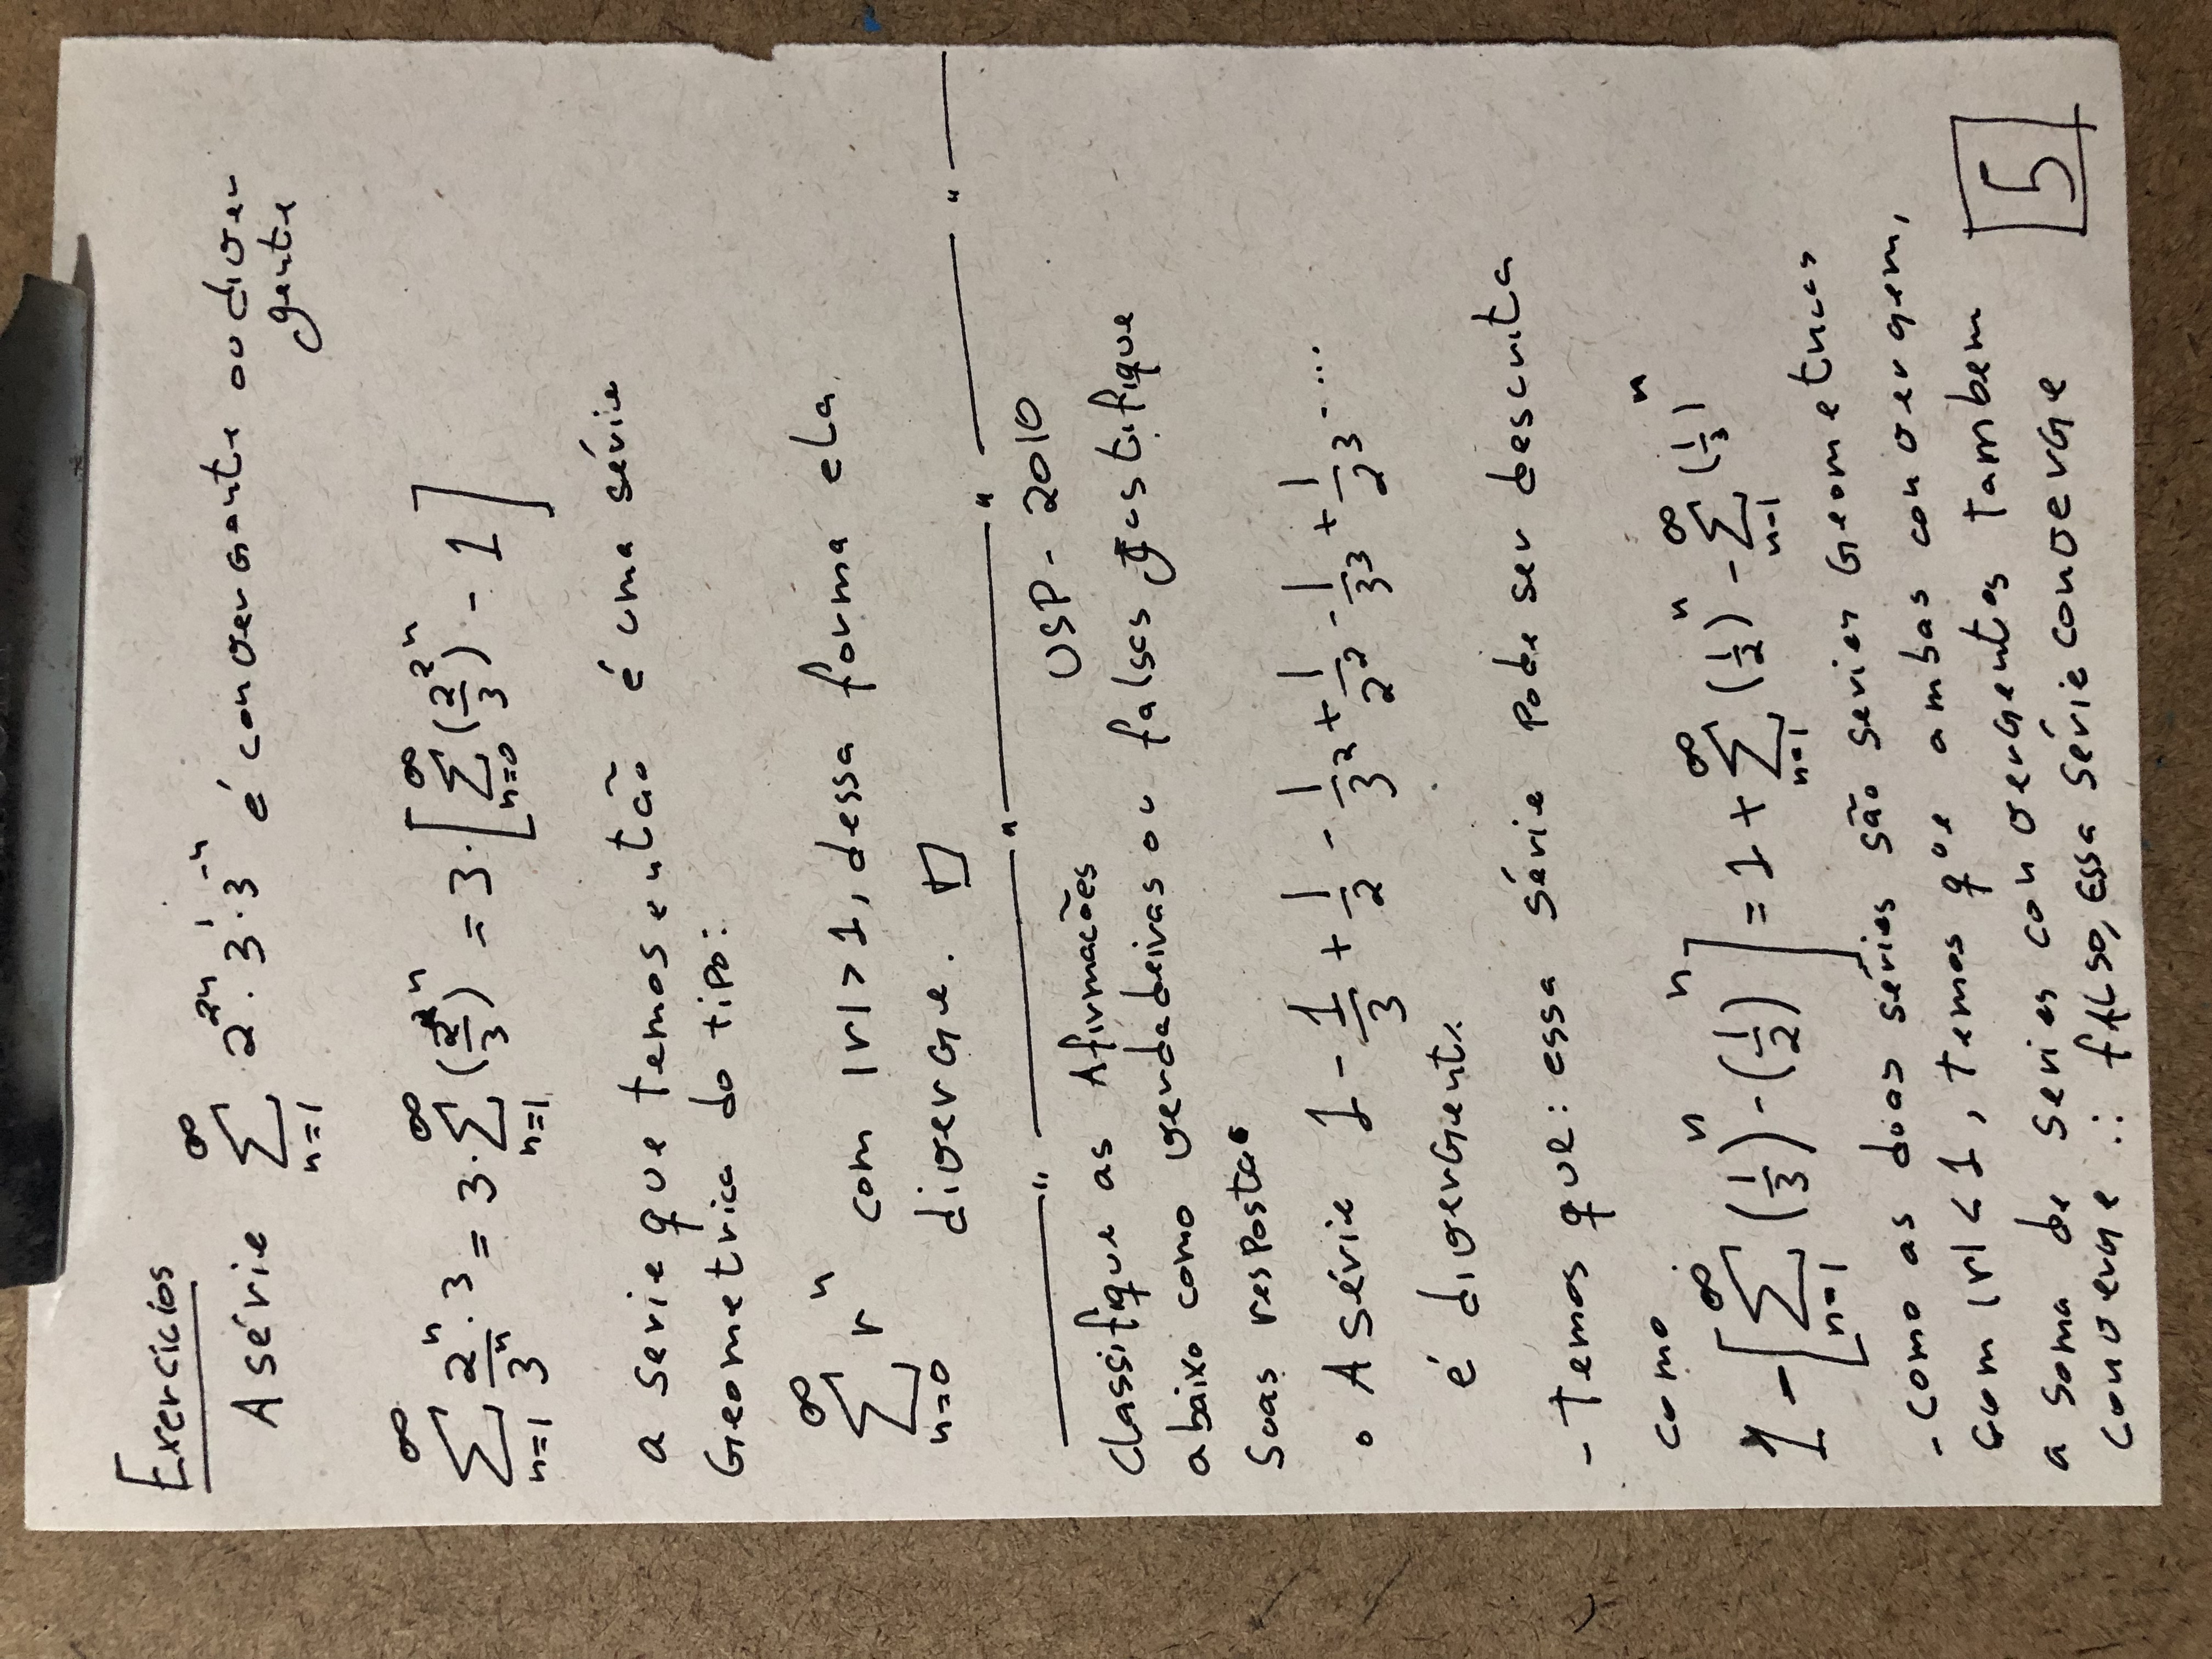 Exercícios
A série ∑_{n=1}^{∞} 2^{2n} · 3^1 · 3^{-n} é convergente ou diver
gente
∑_{n=1}^{∞} 2^n · 3 / 3^n = 3 · ∑_{n=1}^{∞} (2^2/3)^n = 3 · [∑_{n=0}^{∞} (2^2/3)^n - 1]
a serie que temos então é uma série
Geometrica do tipo:
∑_{n=0}^{∞} r^n com |r| > 1, dessa forma ela
diverge. □
USP - 2010
Classifique as Afirmacões
abaixo como verdadeiras ou falsas Justifique
Suas respostas
• A série 1 - 1/3 + 1/2 - 1/3^2 + 1/2^2 - 1/3^3 + 1/2^3 - ....
é divergente
- Temos que: essa série pode ser descrita
como
1 - [∑_{n=1}^{∞} (1/3)^n - (1/2)^n] = 1 + ∑_{n=1}^{∞} (1/2)^n - ∑_{n=1}^{∞} (1/3)^n
- como as duas séries são series Geometricas
com |r| < 1, temos que ambas convergem,
a soma de series convergentes tambem
converge ∴ fALSO, Essa série converge
5